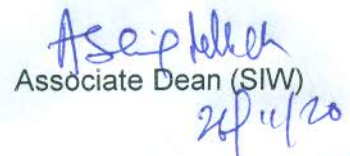 Associate Dean (SIW)
26/11/20